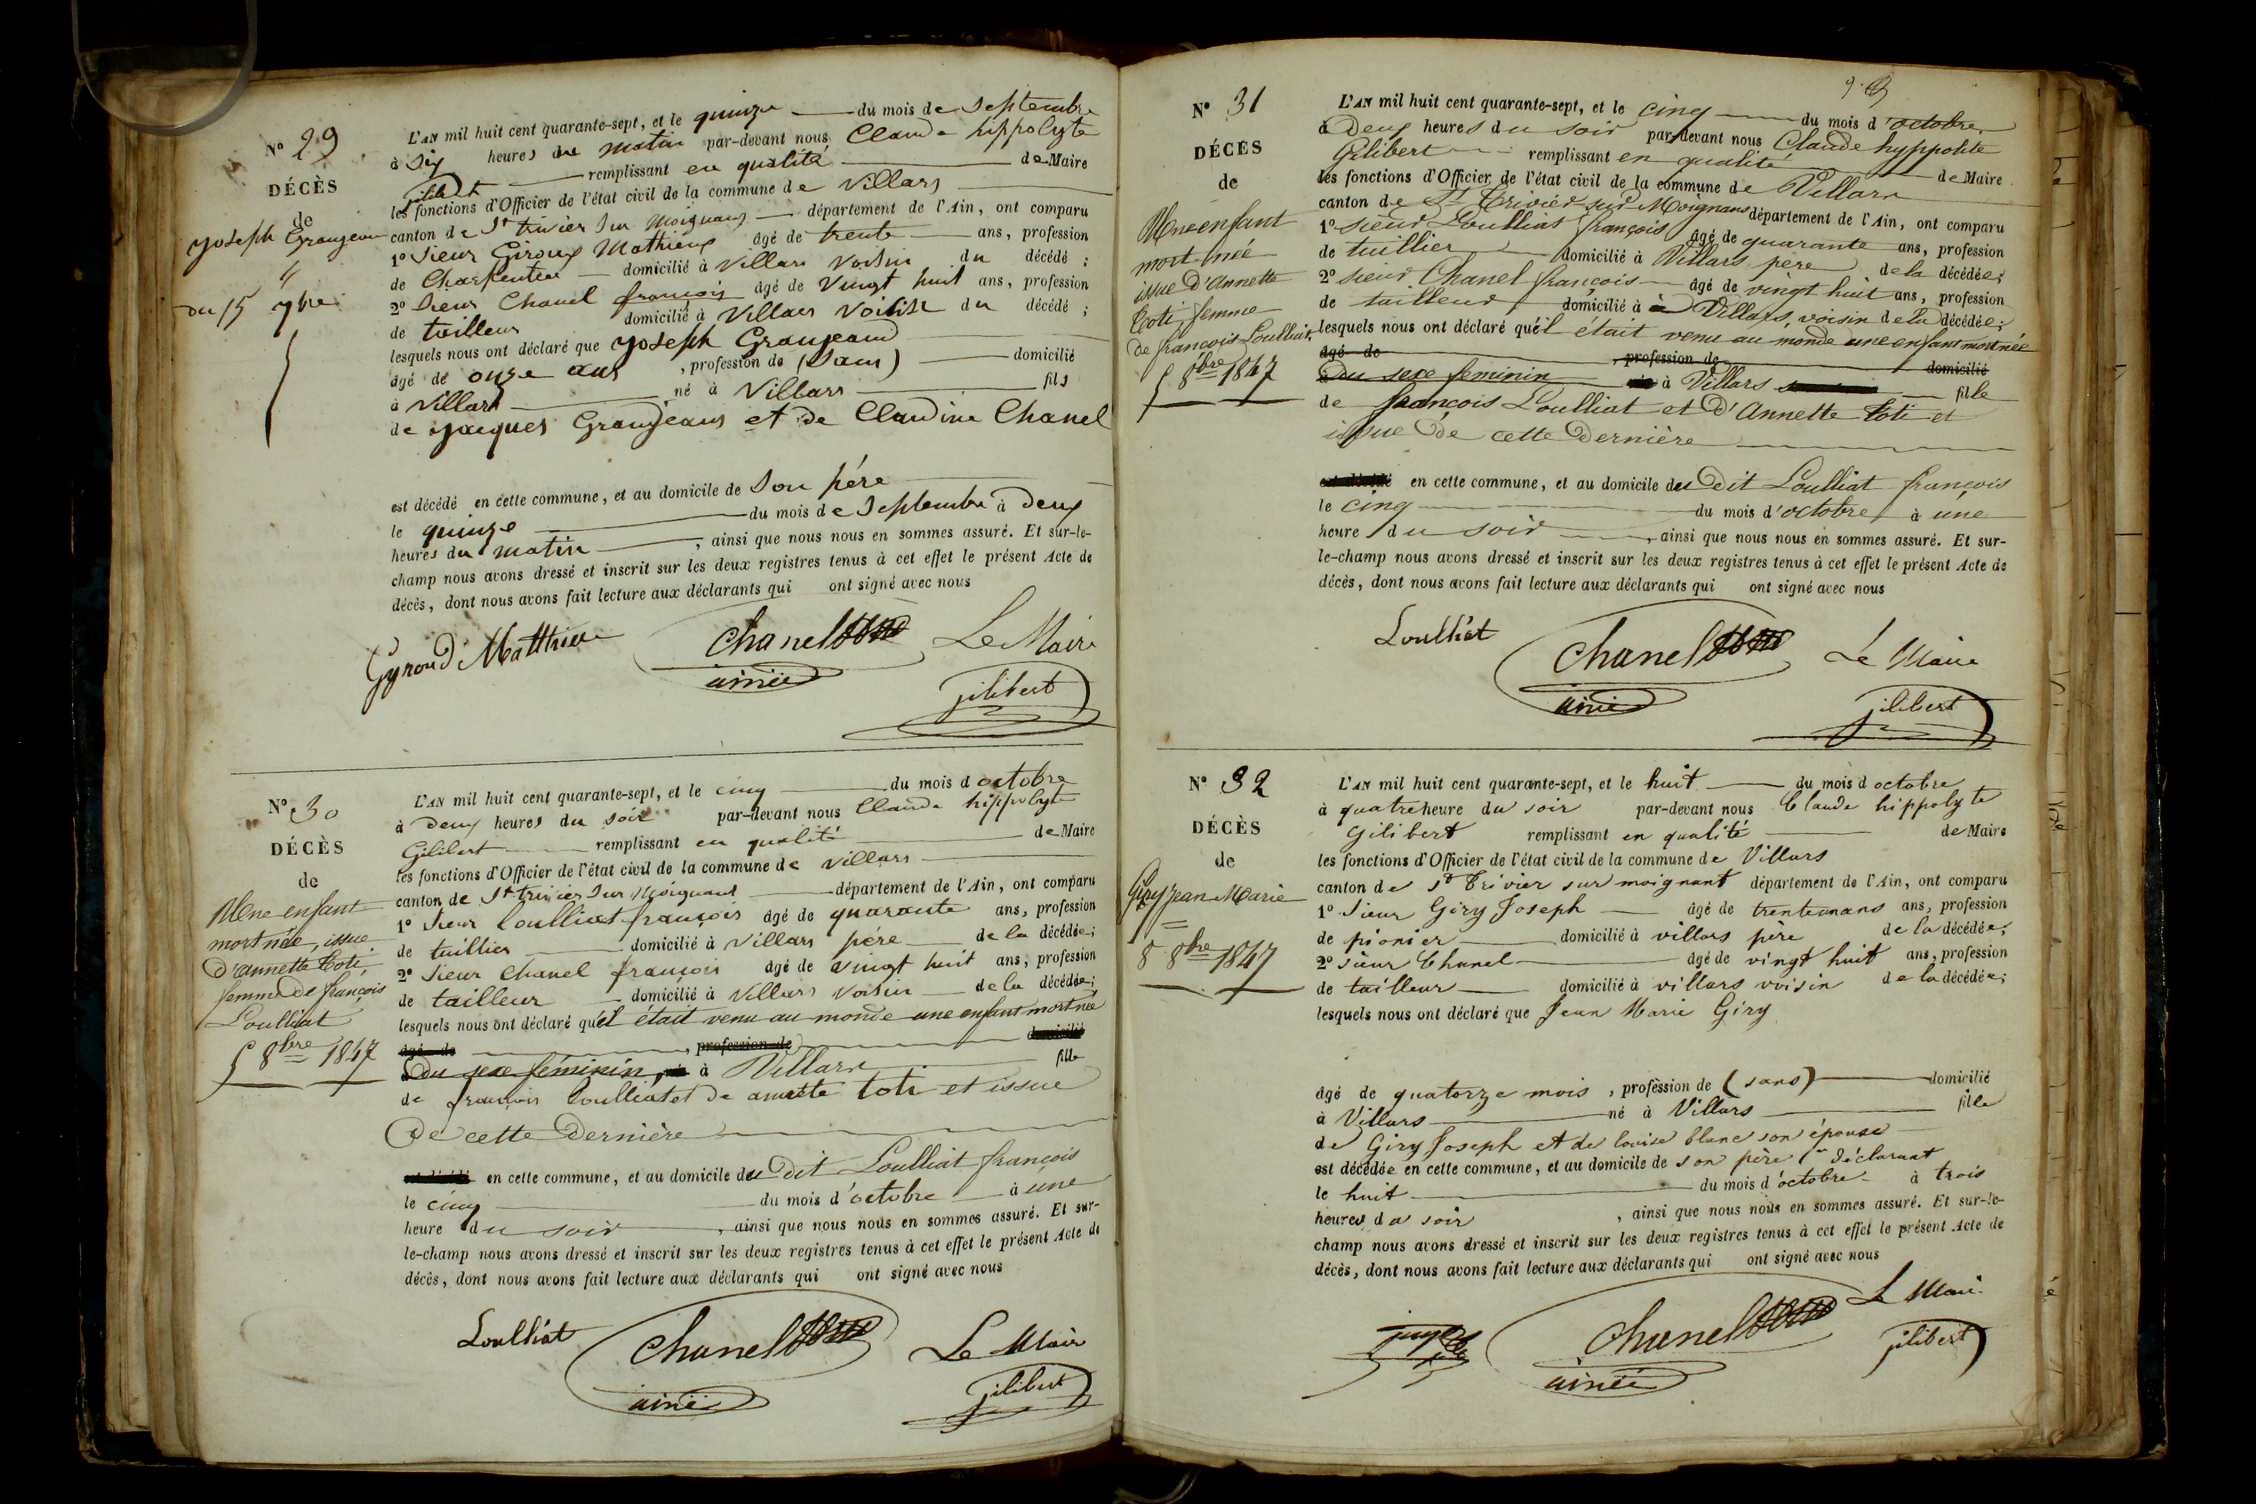 N° 29
DÉCÈS
de
Joseph Granjean
4
du 15 7bre
L'AN mil huit cent quarante-sept, et le quinze du mois de septembre
à six heures du matin par-devant nous Claude hippolyte
gilibert remplissant en qualité de Maire
les fonctions d'Officier de l'état civil de la commune de Villars
canton de St trivier sur Moignans département de l'Ain, ont comparu
1° Sieur Giroux Mathieux âgé de trente ans, profession
de Charpentier domicilié à Villars voisin du décédé ;
2° Sieur Chanel françois âgé de vingt huit ans, profession
de tailleur domicilié à Villars voisin du décédé ;
lesquels nous ont déclaré que Joseph Granjean
âgé de onze ans , profession de (Sans) domicilié
à Villars né à Villars fils
de Jacques Granjean et de Claudine Chanel
est décédé en cette commune, et au domicile de son père
le quinze du mois de Septembre à deux
heures du matin , ainsi que nous nous en sommes assuré. Et sur-le-
champ nous avons dressé et inscrit sur les deux registres tenus à cet effet le présent Acte de
décès, dont nous avons fait lecture aux déclarants qui ont signé avec nous
Gyroud Matthieu Chanel Le Maire
ainée gilibert
N° 30
DÉCÈS
de
Une enfant
mort née, issue
d'annette Toti
femme de françois
Loulliat
5 8bre 1847
L'AN mil huit cent quarante-sept, et le cinq du mois d octobre
à deux heures du soir par-devant nous Claude hippolyte
Gilibert remplissant en qualité de Maire
les fonctions d'Officier de l'état civil de la commune de Villars
canton de St trivier sur Moignans département de l'Ain, ont comparu
1° Sieur Loulliat françois âgé de quarante ans, profession
de tuillier domicilié à Villars père de la décédée ;
2° Sieur Chanel françois âgé de vingt huit ans, profession
de tailleur domicilié à Villars voisin de la décédée ;
lesquels nous ont déclaré qu'il était venu au monde une enfant mort née
âgé de , profession de domicilié
Du sexe féminin, à Villars fille
de françois Loulliat et de annette toti et issue
De cette Dernière
en cette commune, et au domicile du Dit Loulliat françois
le cinq du mois d'octobre à une
heure du soir , ainsi que nous nous en sommes assuré. Et sur-
le-champ nous avons dressé et inscrit sur les deux registres tenus à cet effet le présent Acte de
décès, dont nous avons fait lecture aux déclarants qui ont signé avec nous
Loulliat Chanel Le Maire
ainée gilibert
N° 31
DÉCÈS
de
Une enfant
mort-née
issue d'Annette
Toti femme
de françois Loulliat
5 8bre 1847
L'AN mil huit cent quarante-sept, et le cinq du mois d'octobre
à Deux heures du soir par-devant nous Claude hyppolite
Gilibert remplissant en qualité de Maire
les fonctions d'Officier de l'état civil de la commune de Villars
canton de St Trivier sur Moignans département de l'Ain, ont comparu
1° sieur Loulliat françois âgé de quarante ans, profession
de tuillier domicilié à Villars père de la décédée ;
2° sieur Chanel françois âgé de vingt huit ans, profession
de tailleur domicilié à à Villars, voisin de la décédée ;
lesquels nous ont déclaré qu'il était venu au monde une enfant mort née
âgé de , profession de domicilié
Du sexe feminin à Villars fille
de françois Loulliat et d'Annette Toti et
issue de cette Dernière
en cette commune, et au domicile du Dit Loulliat françois
le cinq du mois d'octobre à une
heure du soir , ainsi que nous nous en sommes assuré. Et sur-
le-champ nous avons dressé et inscrit sur les deux registres tenus à cet effet le présent Acte de
décès, dont nous avons fait lecture aux déclarants qui ont signé avec nous
Loulliat Chanel Le Maire
ainé gilibert
N° 32
DÉCÈS
de
Giry Jean Marie
8 8bre 1847
L'AN mil huit cent quarante-sept, et le huit du mois d octobre
à quatre heure du soir par-devant nous Claude hippolyte
Gilibert remplissant en qualité de Maire
les fonctions d'Officier de l'état civil de la commune de Villars
canton de St Trivier sur moignant département de l'Ain, ont comparu
1° Sieur Giry Joseph âgé de trente un ans ans, profession
de pionier domicilié à villars père de la décédée ;
2° sieur Chanel âgé de vingt huit ans, profession
de tailleur domicilié à villars voisin de la décédée ;
lesquels nous ont déclaré que Jean Marie Giry
âgé de quatorze mois , profession de (sans) domicilié
à Villars né à Villars fille
de Giry Joseph et de louise blanc son épouse
est décédée en cette commune, et au domicile de son père 1er déclarant
le huit du mois d'octobre à trois
heures du soir , ainsi que nous nous en sommes assuré. Et sur-le-
champ nous avons dressé et inscrit sur les deux registres tenus à cet effet le présent Acte de
décès, dont nous avons fait lecture aux déclarants qui ont signé avec nous
Chanel Le Maire
ainée gilibert